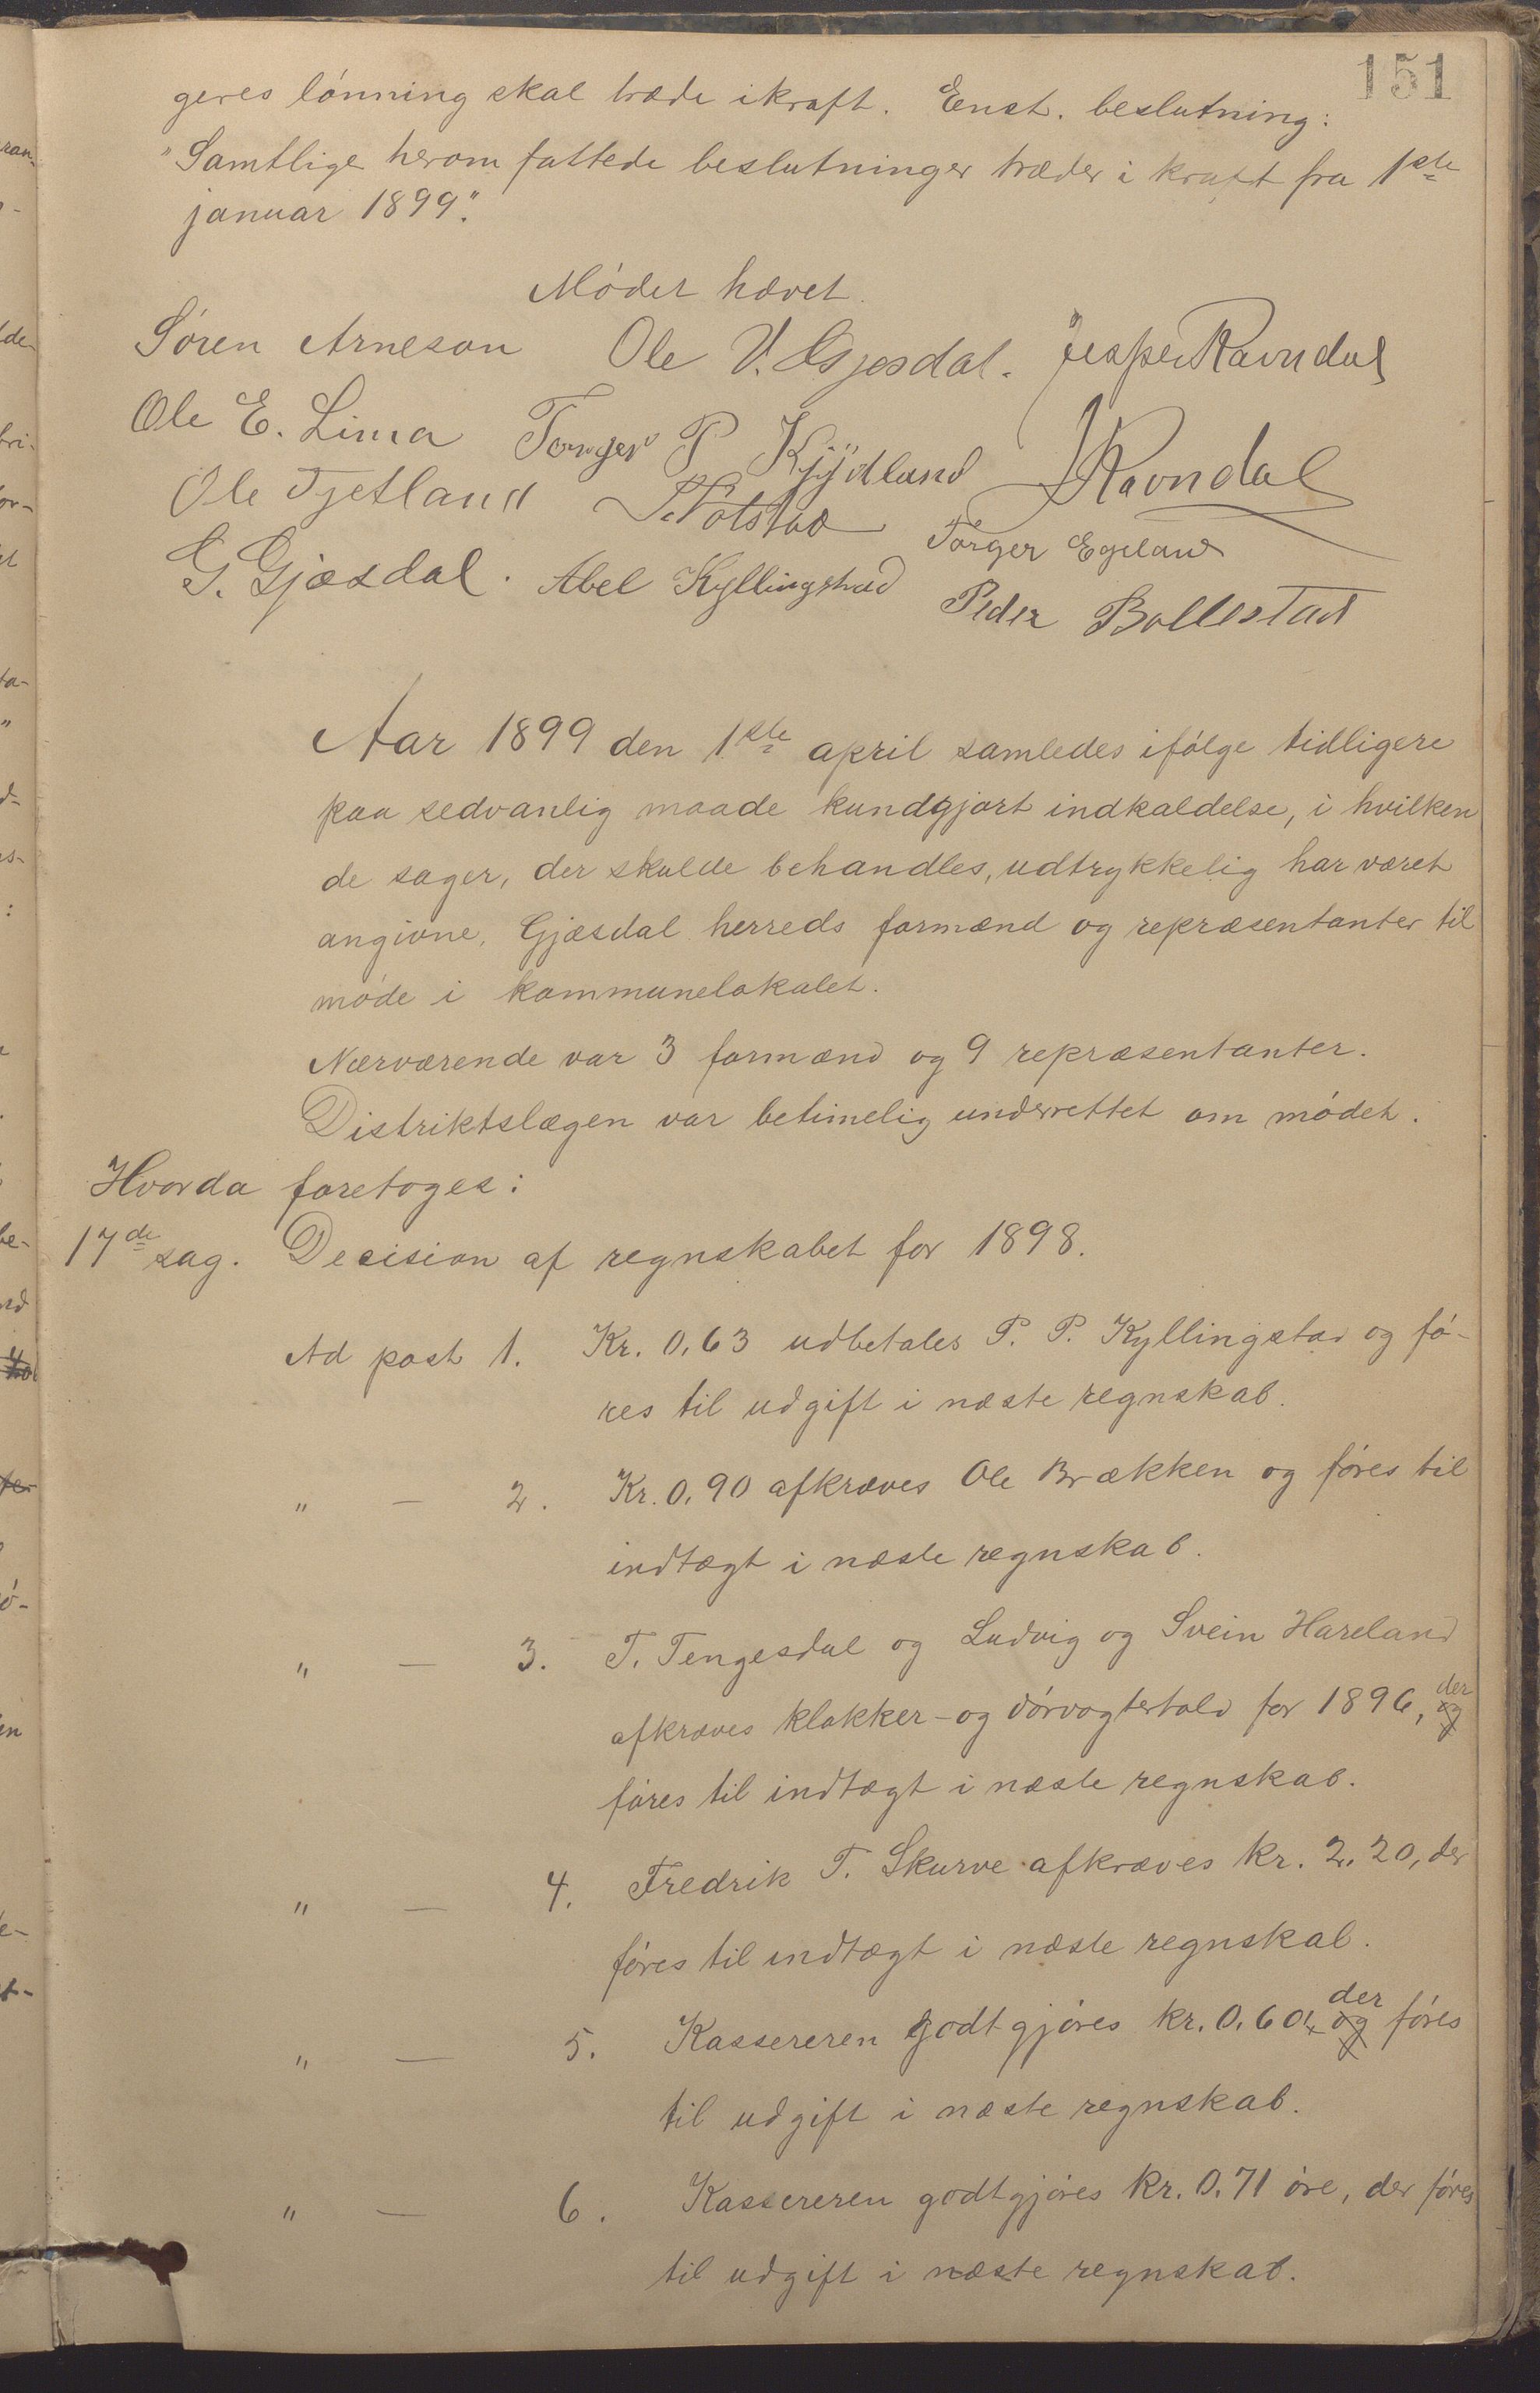 151
geres lønning skal træde ikraft. Enst. beslutning:
"Samtlige herom fattede beslutninger træder i kraft fra 1ste
januar 1899".
Mødet hævet.
Søren Arneson Ole V. Gjesdal. Jesper Ravndal
Ole E. Lima Torger P Kÿdland J Ravndal
Ole Tjetland Torger Egeland
G. Gjæsdal. Abel Kyllingstad Peder Bollestad
Aar 1899 den 1ste april samledes ifølge tidligere
paa sedvanlig maade kundgjort indkaldelse, i hvilken
de sager, der skulde behandles, udtrykkelig har været
angivne, Gjæsdal herreds formænd og repræsentanter til
møde i kommunelokalet.
Nærværende var 3 formænd og 9 repræsentanter.
Distriktslægen var betimelig underrettet om mødet.
Hvorda foretoges:
17de sag. Decision af regnskabet for 1898.
Ad post 1. Kr. 0,63 udbetales P. P. Kyllingstad og fø-
res til udgift i næste regnskab.
" — 2. Kr. 0,90 afkræves Ole Brækken og føres til
indtægt i næste regnskab.
" — 3. T. Tengesdal og Ludvig og Svein Hareland
afkræves klokker- og dørvogtertold for 1896, og der
føres til indtægt i næste regnskab.
" — 4. Fredrik T. Skurve afkræves kr. 2,20, der
føres til indtægt i næste regnskab.
" — 5. Kassereren godtgjøres kr. 0,60, og der føres
til udgift i næste regnskab.
" — 6. Kassereren godtgjøres kr. 0,71 øre, der føres
til udgift i næste regnskab.